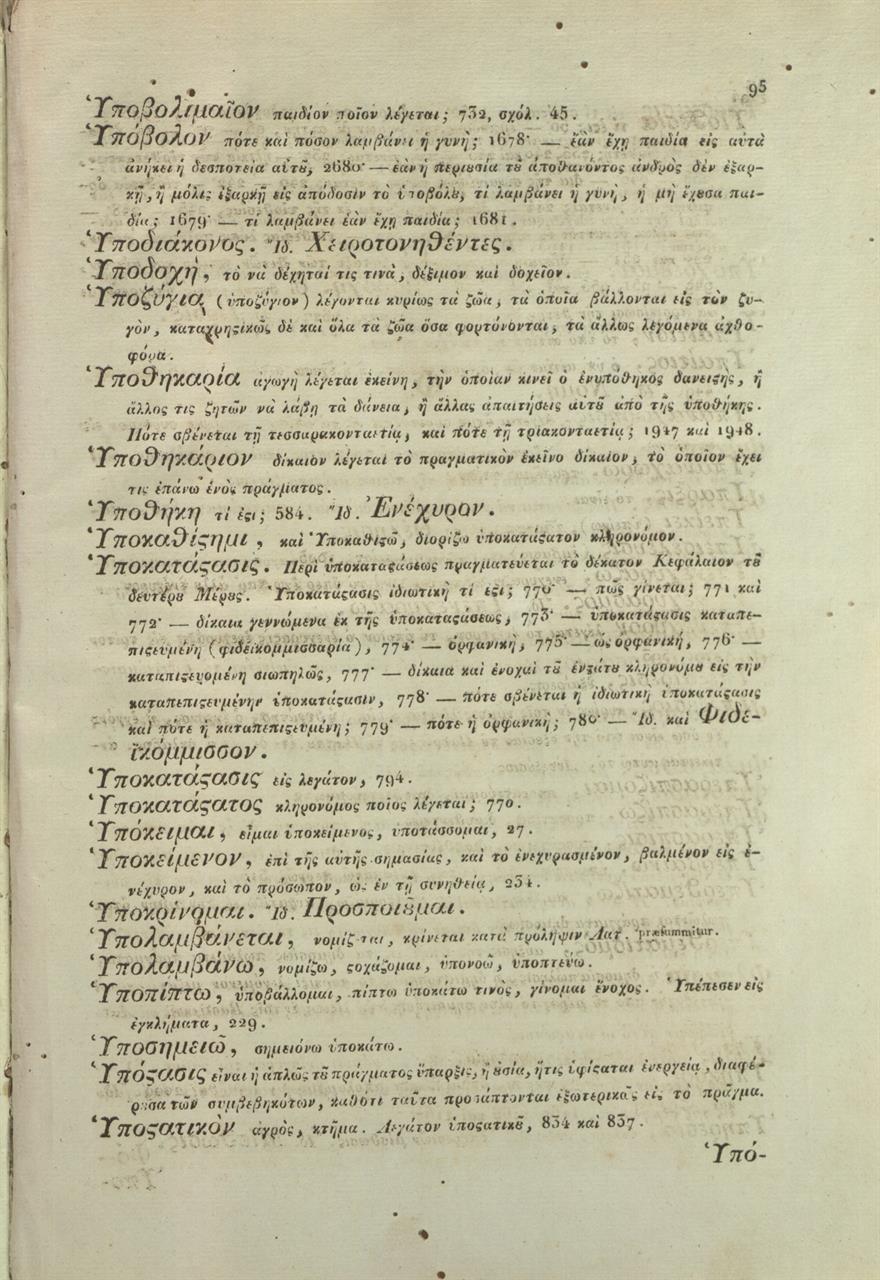 95
Ὑποβολιμαῖον παιδίον ποῖον λέγεται; 732, σχόλ. 45.
Ὑπόβολον πότε καὶ πόσον λαμβάνει ἡ γυνή; 1678· — ἐὰν ἔχῃ παιδία εἰς αὐτὰ
ἀνήκει ἡ δεσποτεία αὐτȣ͂, 2680· — ἐὰν ἡ περιȣσία τȣ͂ ἀποθανόντος ἀνδρὸς δὲν ἐξαρ-
κῇ, ἢ μόλις ἐξαρκῇ εἰς ἀπόδοσιν τȣ͂ ὑποβόλȣ, τί λαμβάνει ἡ γυνὴ, ἡ μὴ ἔχȣσα παι-
δία; 1679· — τί λαμβάνει ἐὰν ἔχῃ παιδία; 1681.
Ὑποδιάκονος. Ἴδ. Χειροτονηθέντες.
Ὑποδοχὴ, τὸ νὰ δέχηταί τις τινὰ, δέξιμον καὶ δοχεῖον.
Ὑποζύγια (ὑποζύγιον) λέγονται κυρίως τὰ ζῶα, τὰ ὁποῖα βάλλονται εἰς τὸν ζυ-
γὸν, καταχρηϛικῶς δὲ καὶ ὅλα τὰ ζῶα ὅσα φορτόνονται, τὰ ἄλλως λεγόμενα ἀχθο-
φόρα.
Ὑποθηκαρία ἀγωγὴ λέγεται ἐκείνη, τὴν ὁποίαν κινεῖ ὁ ἐνυπόθηκος δανειϛὴς, ἢ
ἄλλος τις ζητῶν νὰ λάβῃ τὰ δάνεια, ἢ ἄλλας ἀπαιτήσεις αὑτȣ͂ ἀπὸ τῆς ὑποθήκης.
Πότε σβένεται τῇ τεσσαρακονταετίᾳ, καὶ πότε τῇ τριακονταετίᾳ; 1947 καὶ 1948.
Ὑποθηκάριον δίκαιον λέγεται τὸ πραγματικὸν ἐκεῖνο δίκαιον, τὸ ὁποῖον ἔχει
τις ἐπάνω ἑνὸς πράγματος.
Ὑποθήκη τί ἐϛι; 584. Ἴδ. Ἐνέχυρον.
Ὑποκαθίϛημι, καὶ Ὑποκαθιϛῶ, διορίζω ὑποκατάϛατον κληρονόμον.
Ὑποκατάϛασις. Περὶ ὑποκαταϛάσεως πραγματεύεται τὸ δέκατον Κεφάλαιον τȣ͂
δευτέρȣ Μέρȣς. Ὑποκατάϛασις ἰδιωτικὴ τί ἐϛι; 770· — πῶς γίνεται; 771 καὶ
772· — δίκαια γεννώμενα ἐκ τῆς ὑποκαταϛάσεως, 773· — ὑποκατάϛασις καταπε-
πιϛευμένη (φιδεϊκομμισσαρία), 774· — ὀρφανικὴ, 775· — ὡς ὀρφανική, 776· —
καταπιϛευομένη σιωπηλῶς, 777· — δίκαια καὶ ἐνοχαὶ τȣ͂ ἐνϛάτȣ κληρονόμȣ εἰς τὴν
καταπεπιϛευμένην ὑποκατάϛασιν, 778· — πότε σβένεται ἡ ἰδιωτικὴ ὑποκατάϛασις
καὶ πότε ἡ καταπεπιϛευμένη; 779· — πότε ἡ ὀρφανική; 780· — Ἴδ. καὶ Φιδε-
ϊκόμμισσον.
Ὑποκατάϛασις εἰς λεγάτον, 794.
Ὑποκατάϛατος κληρονόμος ποῖος λέγεται; 770.
Ὑπόκειμαι, εἶμαι ὑποκείμενος, ὑποτάσσομαι, 27.
Ὑποκείμενον, ἐπὶ τῆς αὐτῆς σημασίας, καὶ τὸ ἐνεχυρασμένον, βαλμένον εἰς ἐ-
νέχυρον, καὶ τὸ πρόσωπον, ὡς ἐν τῇ συνηθείᾳ, 234.
Ὑποκρίνομαι. Ἴδ. Προσποιȣ͂μαι.
Ὑπολαμβάνεται, νομίζεται, κρίνεται κατὰ πρόληψιν Λατ. præsummitur.
Ὑπολαμβάνω, νομίζω, ϛοχάζομαι, ὑπονοῶ, ὑποπτεύω.
Ὑποπίπτω, ὑποβάλλομαι, πίπτω ὑποκάτω τινὸς, γίνομαι ἔνοχος. Ὑπέπεσεν εἰς
ἐγκλήματα, 229.
Ὑποσημειῶ, σημειόνω ὑποκάτω.
Ὑπόϛασις εἶναι ἡ ἁπλῶς τȣ͂ πράγματος ὕπαρξις, ἡ ȣ̓σία, ἥτις ὑφίϛαται ἐνεργείᾳ, διαφέ-
ρȣσα τῶν συμβεβηκότων, καθότι ταῦτα προσάπτονται ἐξωτερικῶς εἰς τὸ πρᾶγμα.
Ὑποϛατικὸν ἀγρὸς, κτῆμα. Λεγάτον ὑποϛατικȣ͂, 834 καὶ 837.
Ὑπό-